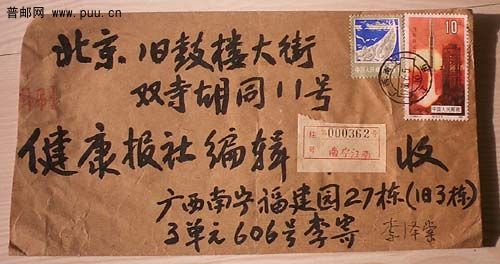 普邮网
www.puu.cn
北京旧鼓楼大街
双寺胡同11号
健康报社编辑 收
广西南宁福建园27栋(旧3栋)
3单元606号李寄
李泽棠
挂号 000362
南宁江南
10
中国人民邮政
中国人民邮政